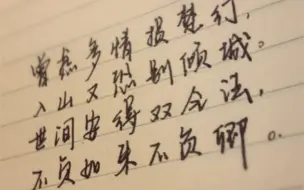 曾虑多情损梵行，
入山又恐别倾城。
世间安得双全法，
不负如来不负卿。